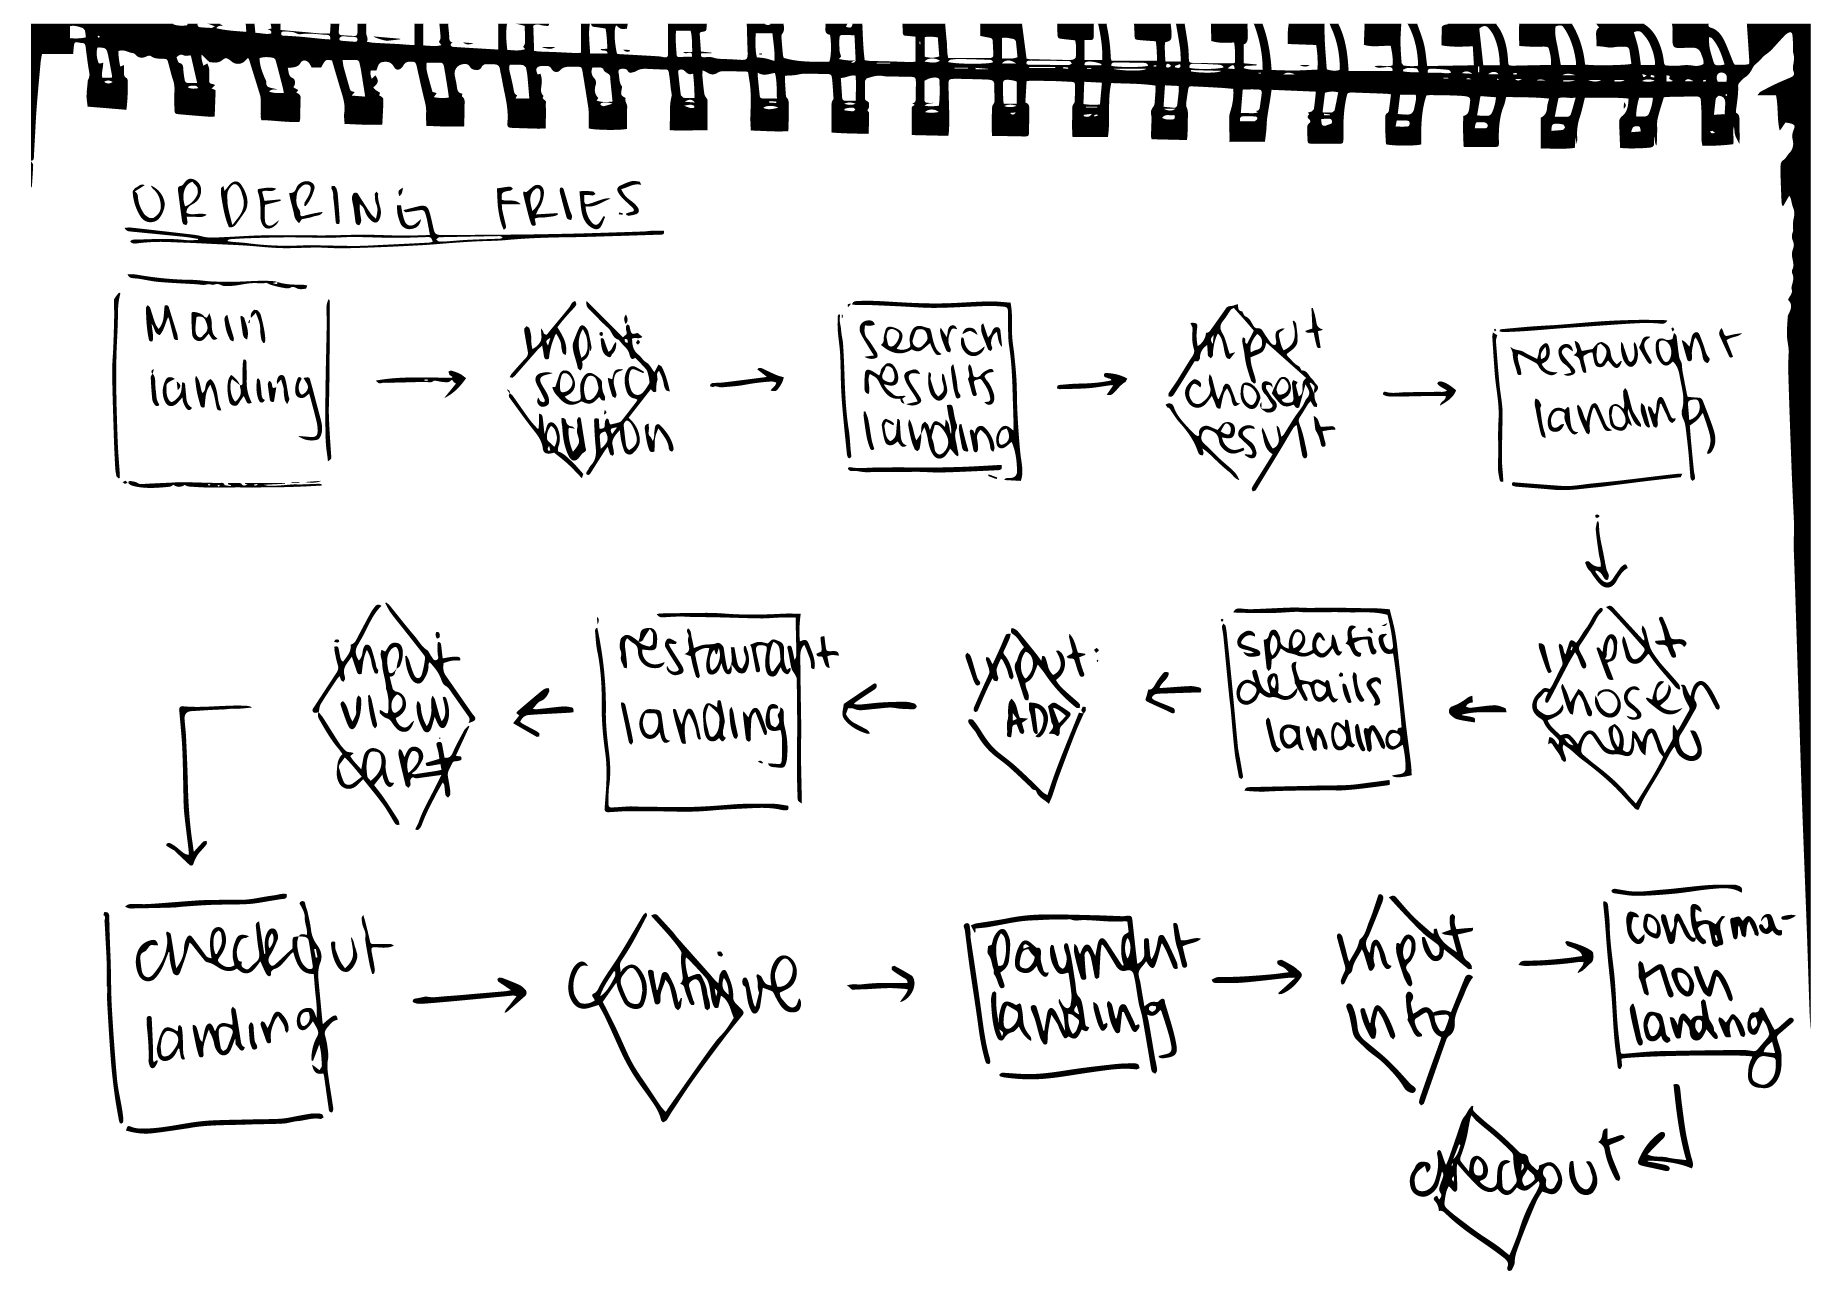 ORDERING FRIES
Main
landing
input
search
button
search
results
landing
input
chosen
result
restaurant
landing
input
chosen
menu
specific
details
landing
input:
ADD
restaurant
landing
input
view
cart
checkout
landing
continue
payment
landing
input
info
confirma-
tion
landing
checkout